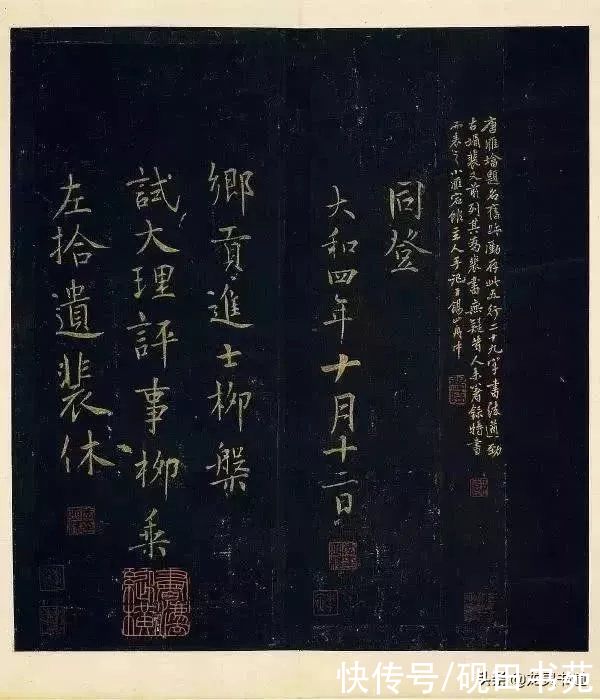 左拾遺裴休
試大理評事柳乘
鄉貢進士柳槃
大和四年十月十二日
同登
唐雁塔題名舊跡存此五行二十九字書法遒勁
古媚裴文前列其為裴書無疑昔人未著錄特書
而表之小主人手記
快传号/砚田书苑
头条@龙昇书道